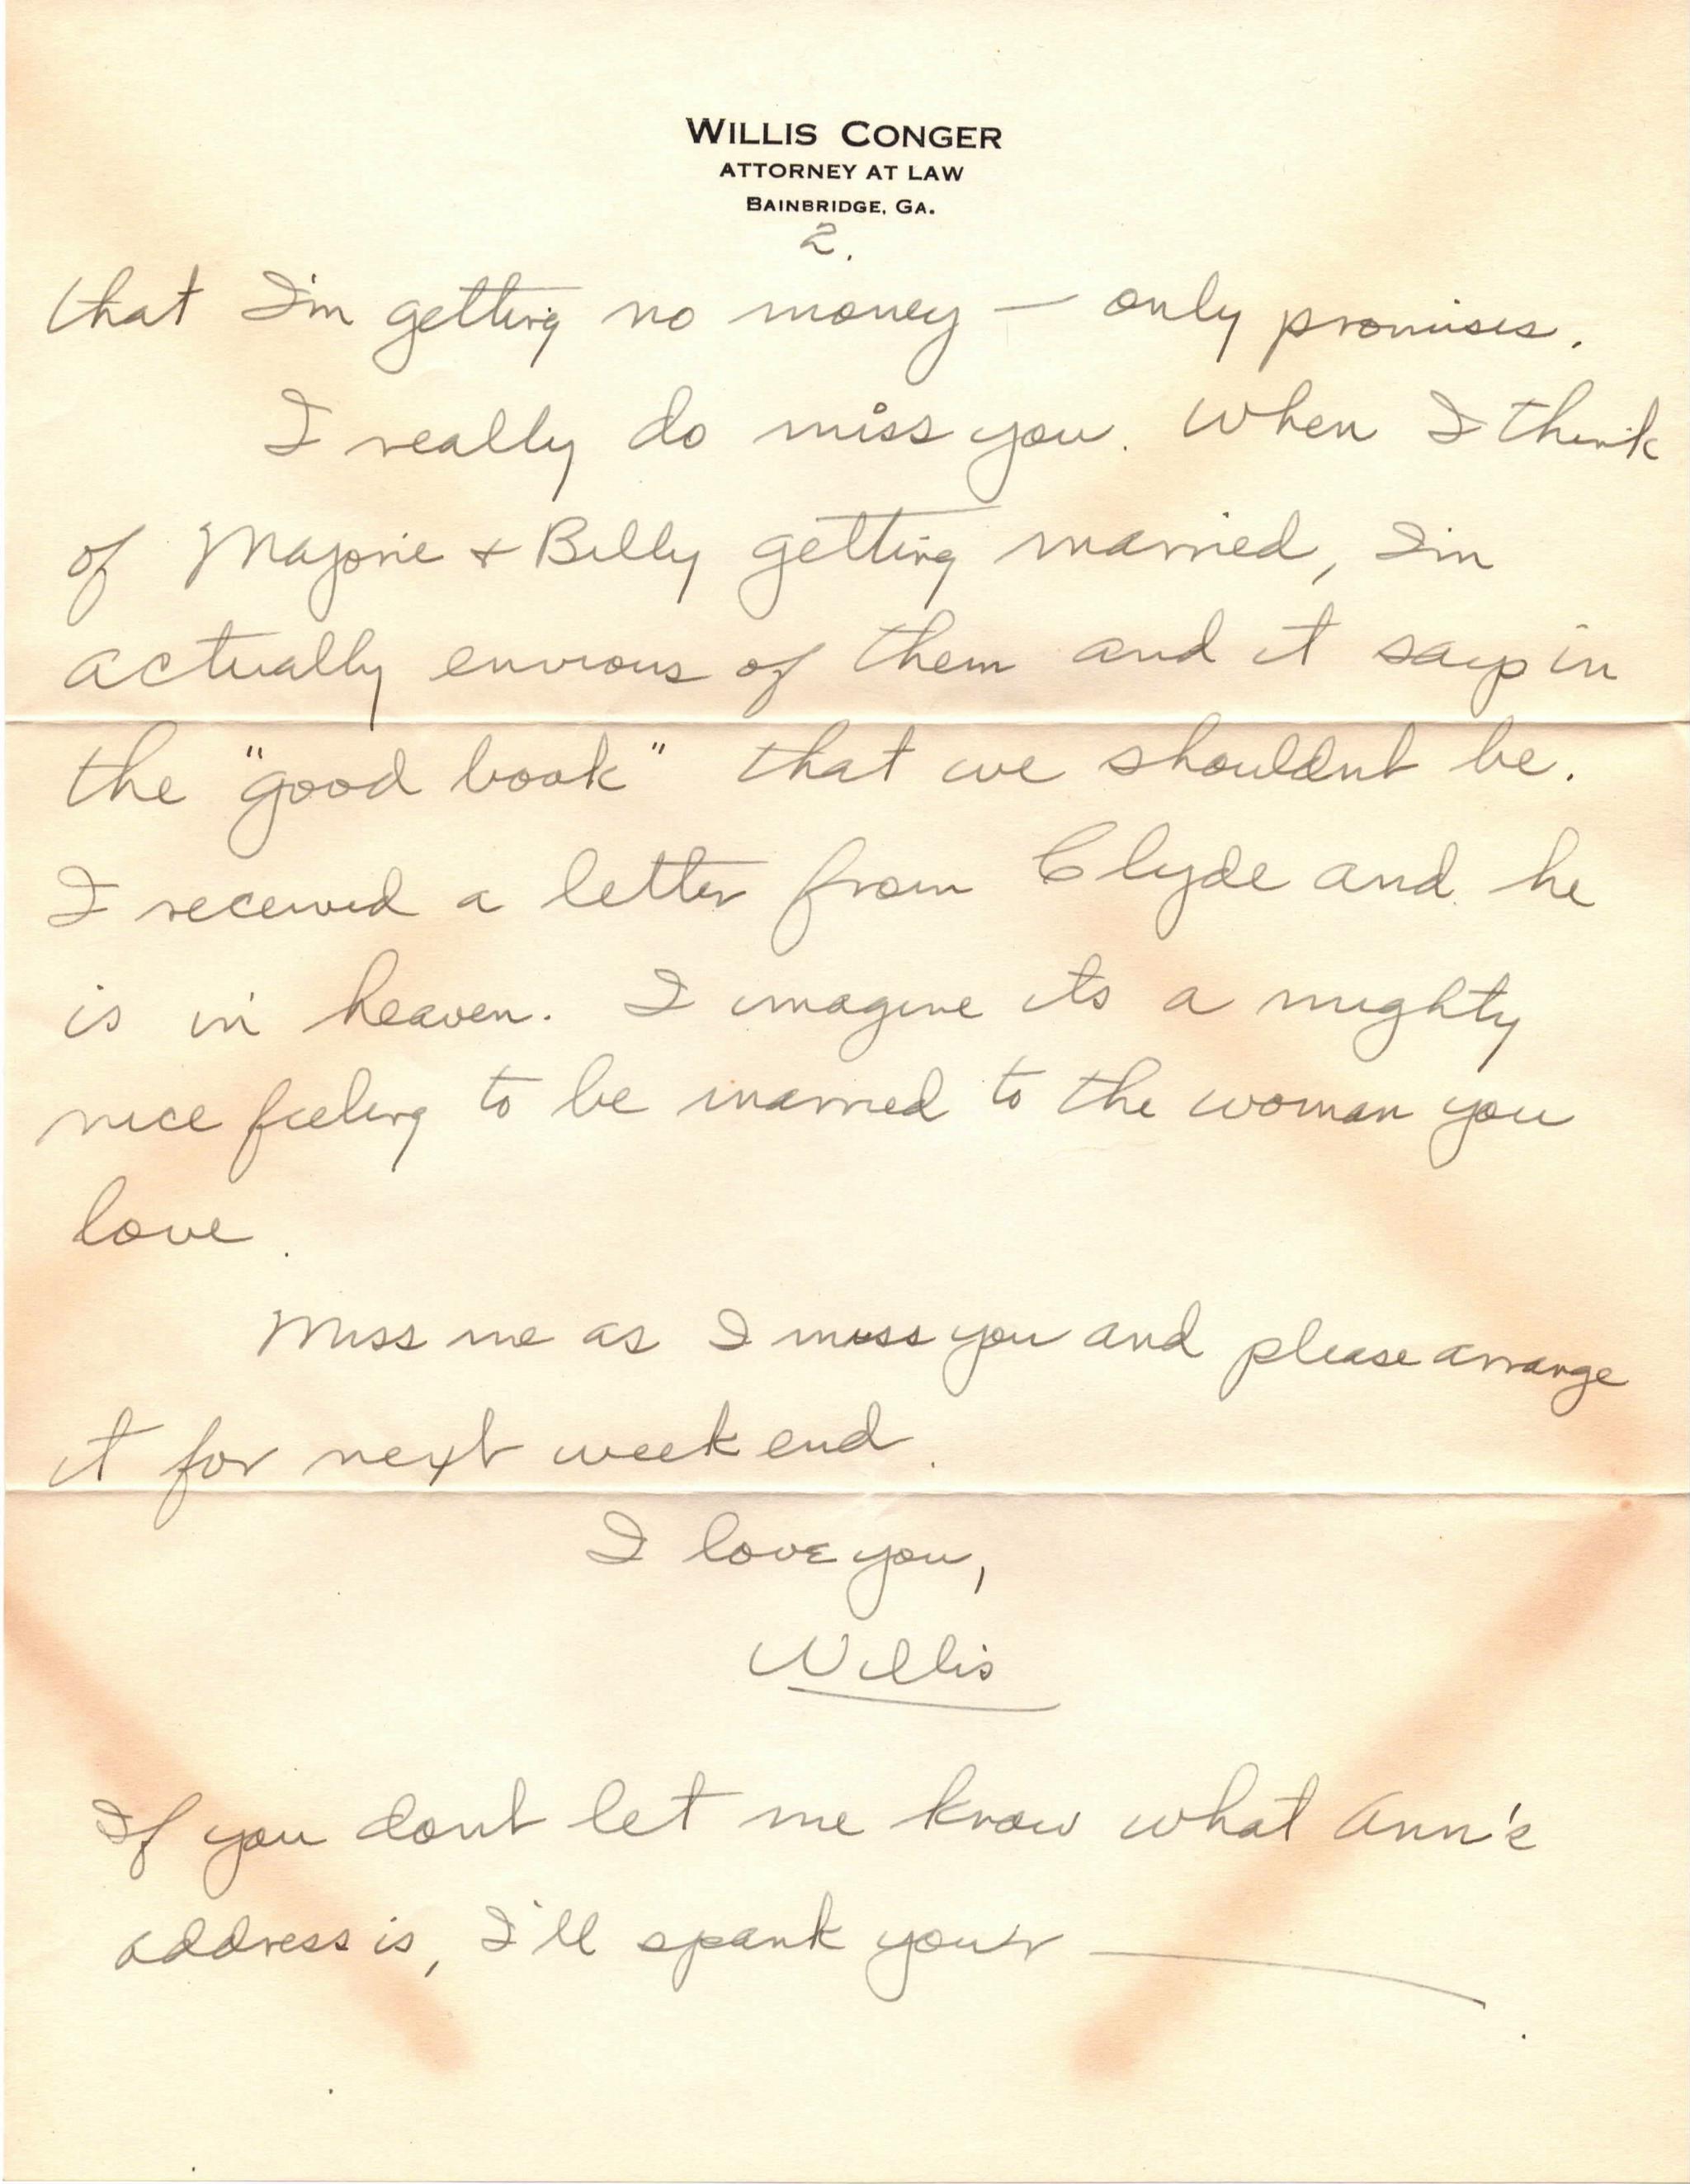 WILLIS CONGER
ATTORNEY AT LAW
BAINBRIDGE, GA.
2.
that I'm getting no money — only promises.
I really do miss you. When I think
of Majorie + Billy getting married, I'm
actually envious of them and it says in
the "good book" that we shouldnt be.
I received a letter from Clyde and he
is in heaven. I imagine its a mighty
nice feeling to be married to the woman you
love.
Miss me as I miss you and please arrange
it for next week end.
I love you,
Willis
If you dont let me know what Ann's
address is, I'll spank your ———.